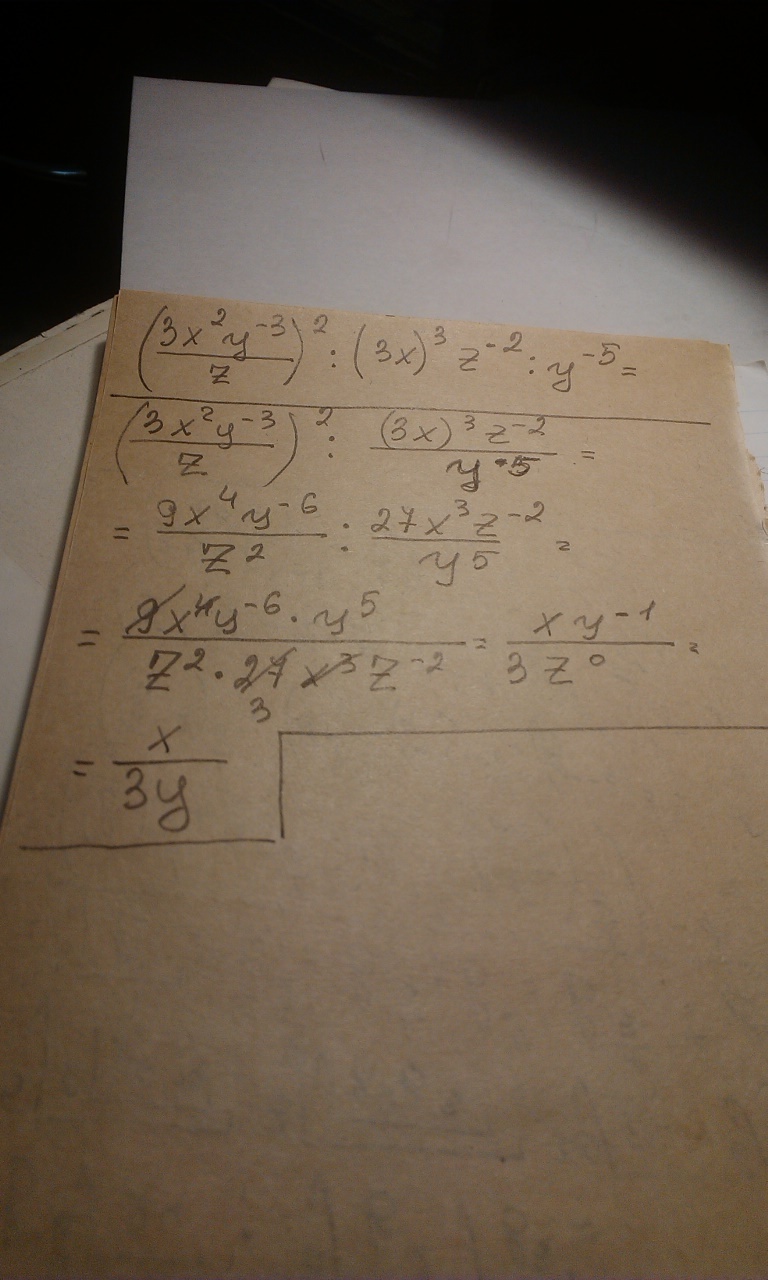 (3x²y⁻³/z)² : (3x)³ z⁻² : y⁻⁵ =
(3x²y⁻³/z)² : (3x)³z⁻²/y⁻⁵ =
= 9x⁴y⁻⁶/z² : 27x³z⁻²/y⁵ =
= 9x⁴y⁻⁶ · y⁵/z² · 27x³z⁻² = xy⁻¹/3z⁰ =
3
= x/3y